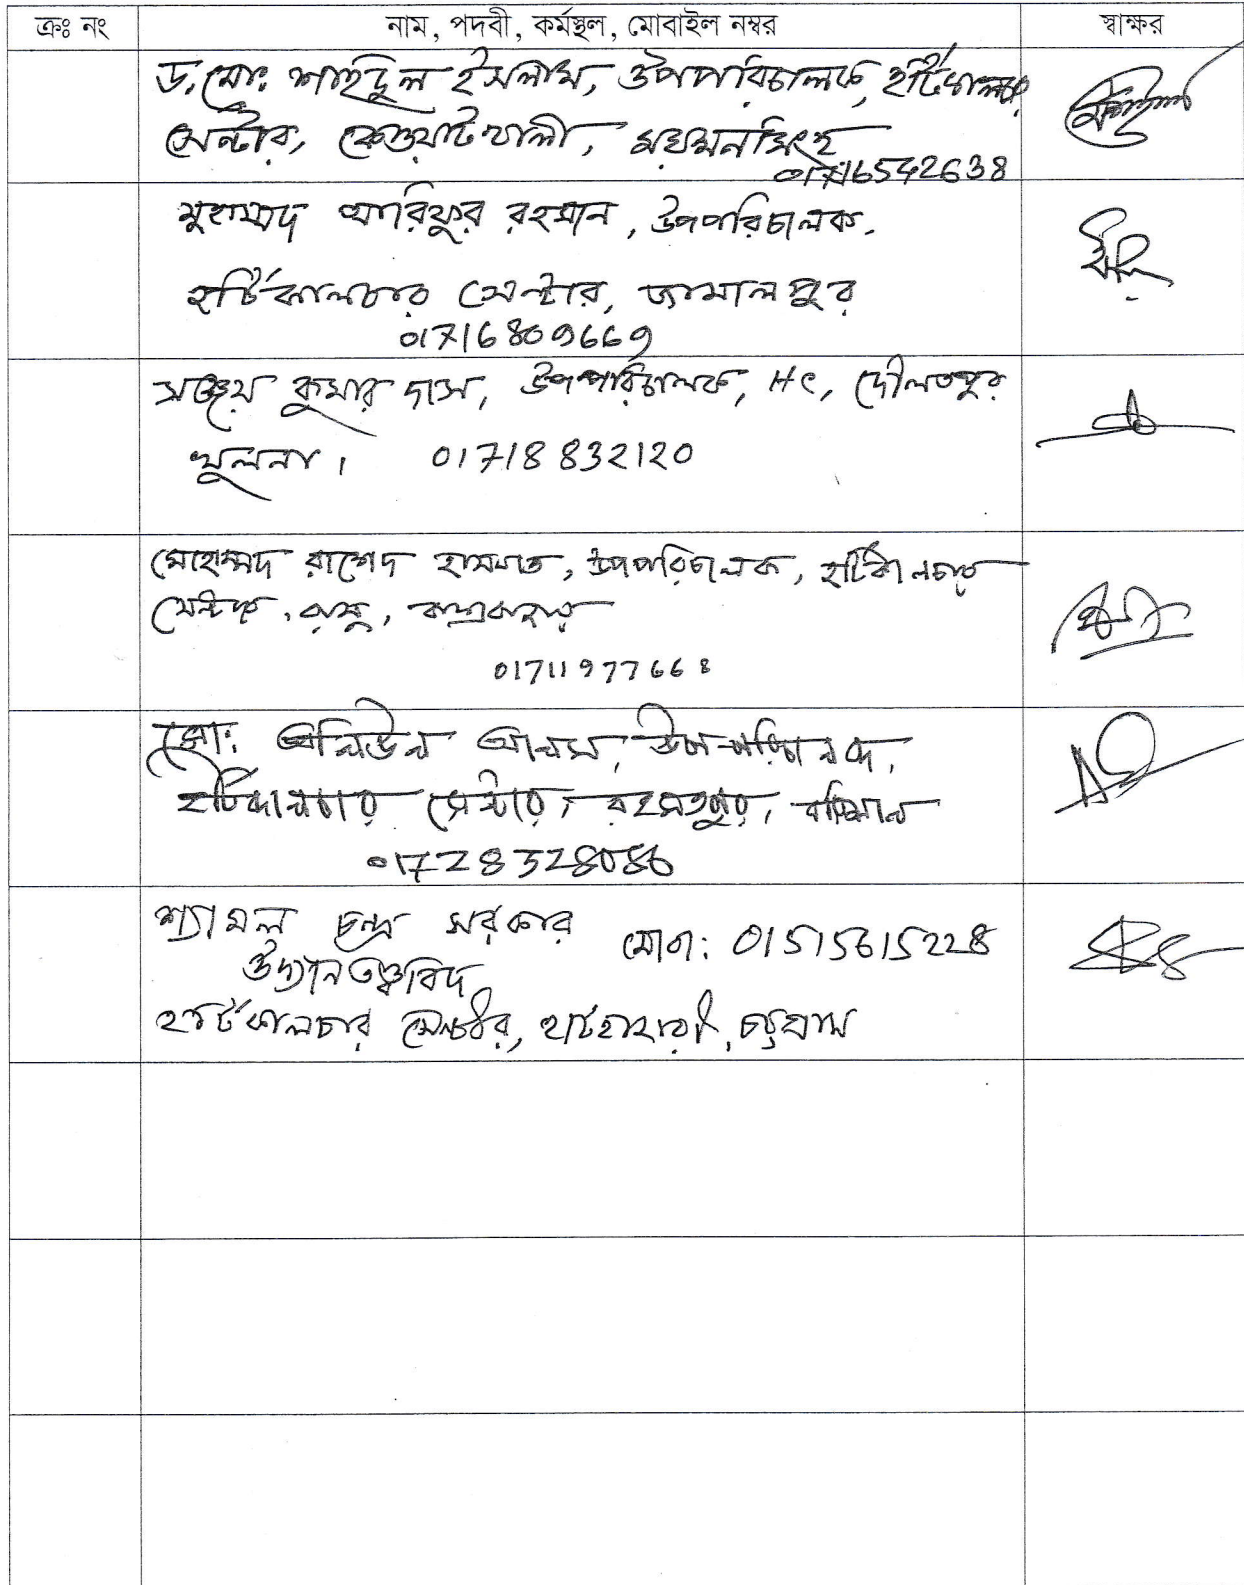 ক্রঃ নং নাম, পদবী, কর্মস্থল, মোবাইল নম্বর স্বাক্ষর
ড. মোঃ শাহিদুল ইসলাম, উপপরিচালক, হর্টিকালচার
সেন্টার, কেওয়াটখালী, ময়মনসিংহ
01716542638
মুহাম্মদ আরিফুর রহমান, উপপরিচালক.
হর্টিকালচার সেন্টার, জামালপুর
01716809669
সঞ্জয় কুমার দাস, উপপরিচালক, HC, দৌলতপুর
খুলনা। 01718832120
মোহাম্মদ রাশেদ হাসনাত, উপপরিচালক, হর্টিকালচার
সেন্টার, রামু, কক্সবাজার
01711977668
মোঃ অলিউল আলম, উপ-পরিচালক,
হর্টিকালচার সেন্টার, রহমতপুর, বরিশাল
01728328086
শ্যামল চন্দ্র সরকার মোবা: 01515615228
উদ্যানতত্ত্ববিদ
হর্টিকালচার সেন্টার, হাটহাজারী, চট্টগ্রাম